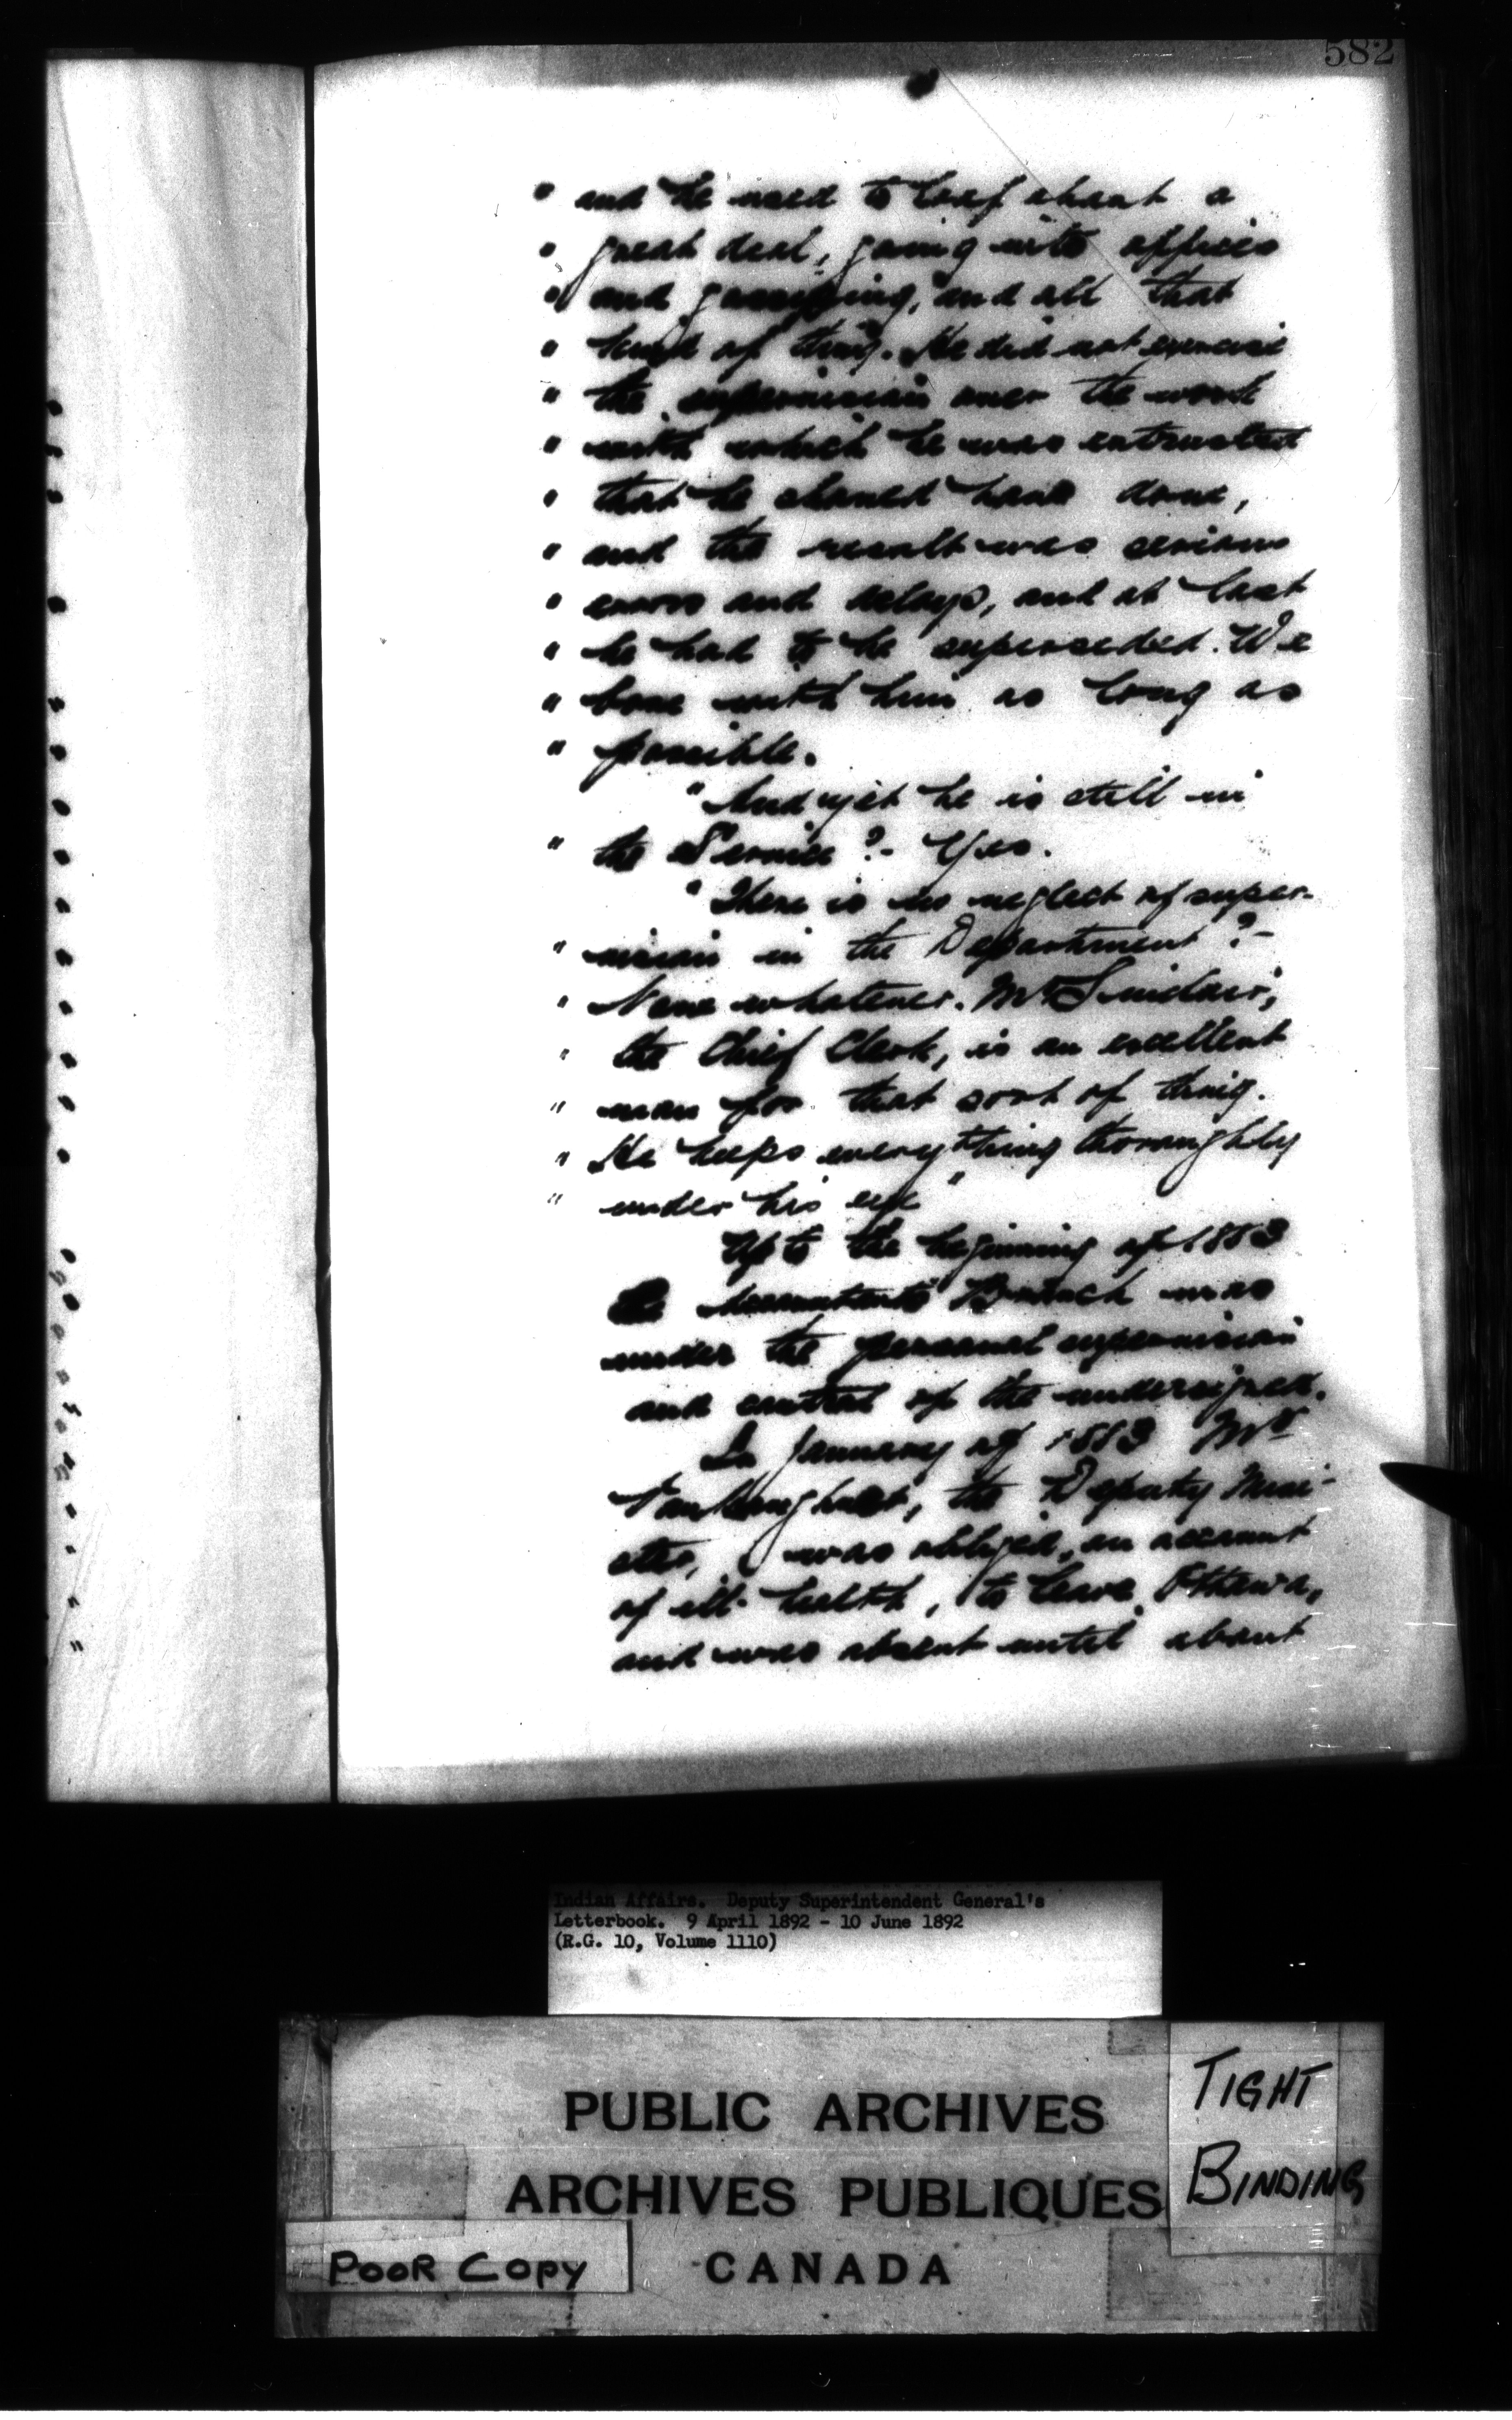 582
" and he used to loaf about a
" great deal, going into offices
" and gossiping, and all that
" kind of thing. He did not exercise
" the supervision over the work
" with which he was entrusted
" that he should have done,
" and the result was serious
" errors and delays, and at last
" he had to be superseded. We
" bore with him as long as
" possible.
" And yet he is still in
" the Service ?- Yes.
" There is no neglect of super-
" vision in the Department ?-
" None whatever. Mr Sinclair,
" the Chief Clerk, is an excellent
" man for that sort of thing.
" He keeps everything thoroughly
" under his eye "
Up to the beginning of 1883
the Accountant's Branch was
under the personal supervision
and control of the undersigned.
In January of 1883 Mr
Vankoughnet, the Deputy Mini-
ster, was obliged, on account
of ill-health, to leave Ottawa,
and was absent until about
Indian Affairs. Deputy Superintendent General's
Letterbook. 9 April 1892 - 10 June 1892
(R.G. 10, Volume 1110)
PUBLIC ARCHIVES
ARCHIVES PUBLIQUES
CANADA
TIGHT
BINDING
POOR COPY